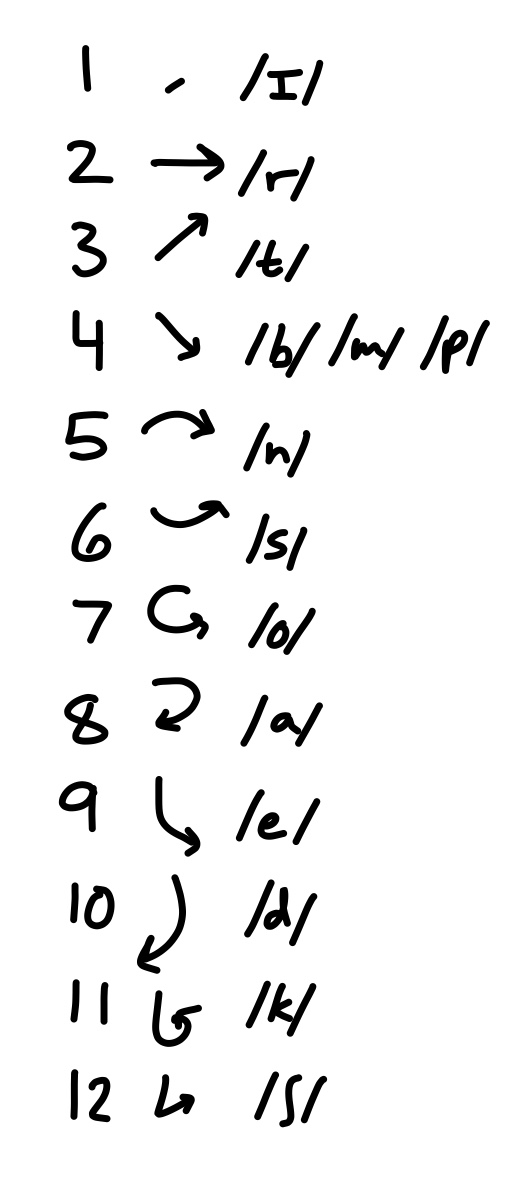 1 /I/
2 → /r/
3 ↗ /t/
4 ↘ /b/ /m/ /p/
5 /n/
6 /s/
7 /o/
8 /a/
9 /e/
10 /d/
11 /k/
12 /ʃ/